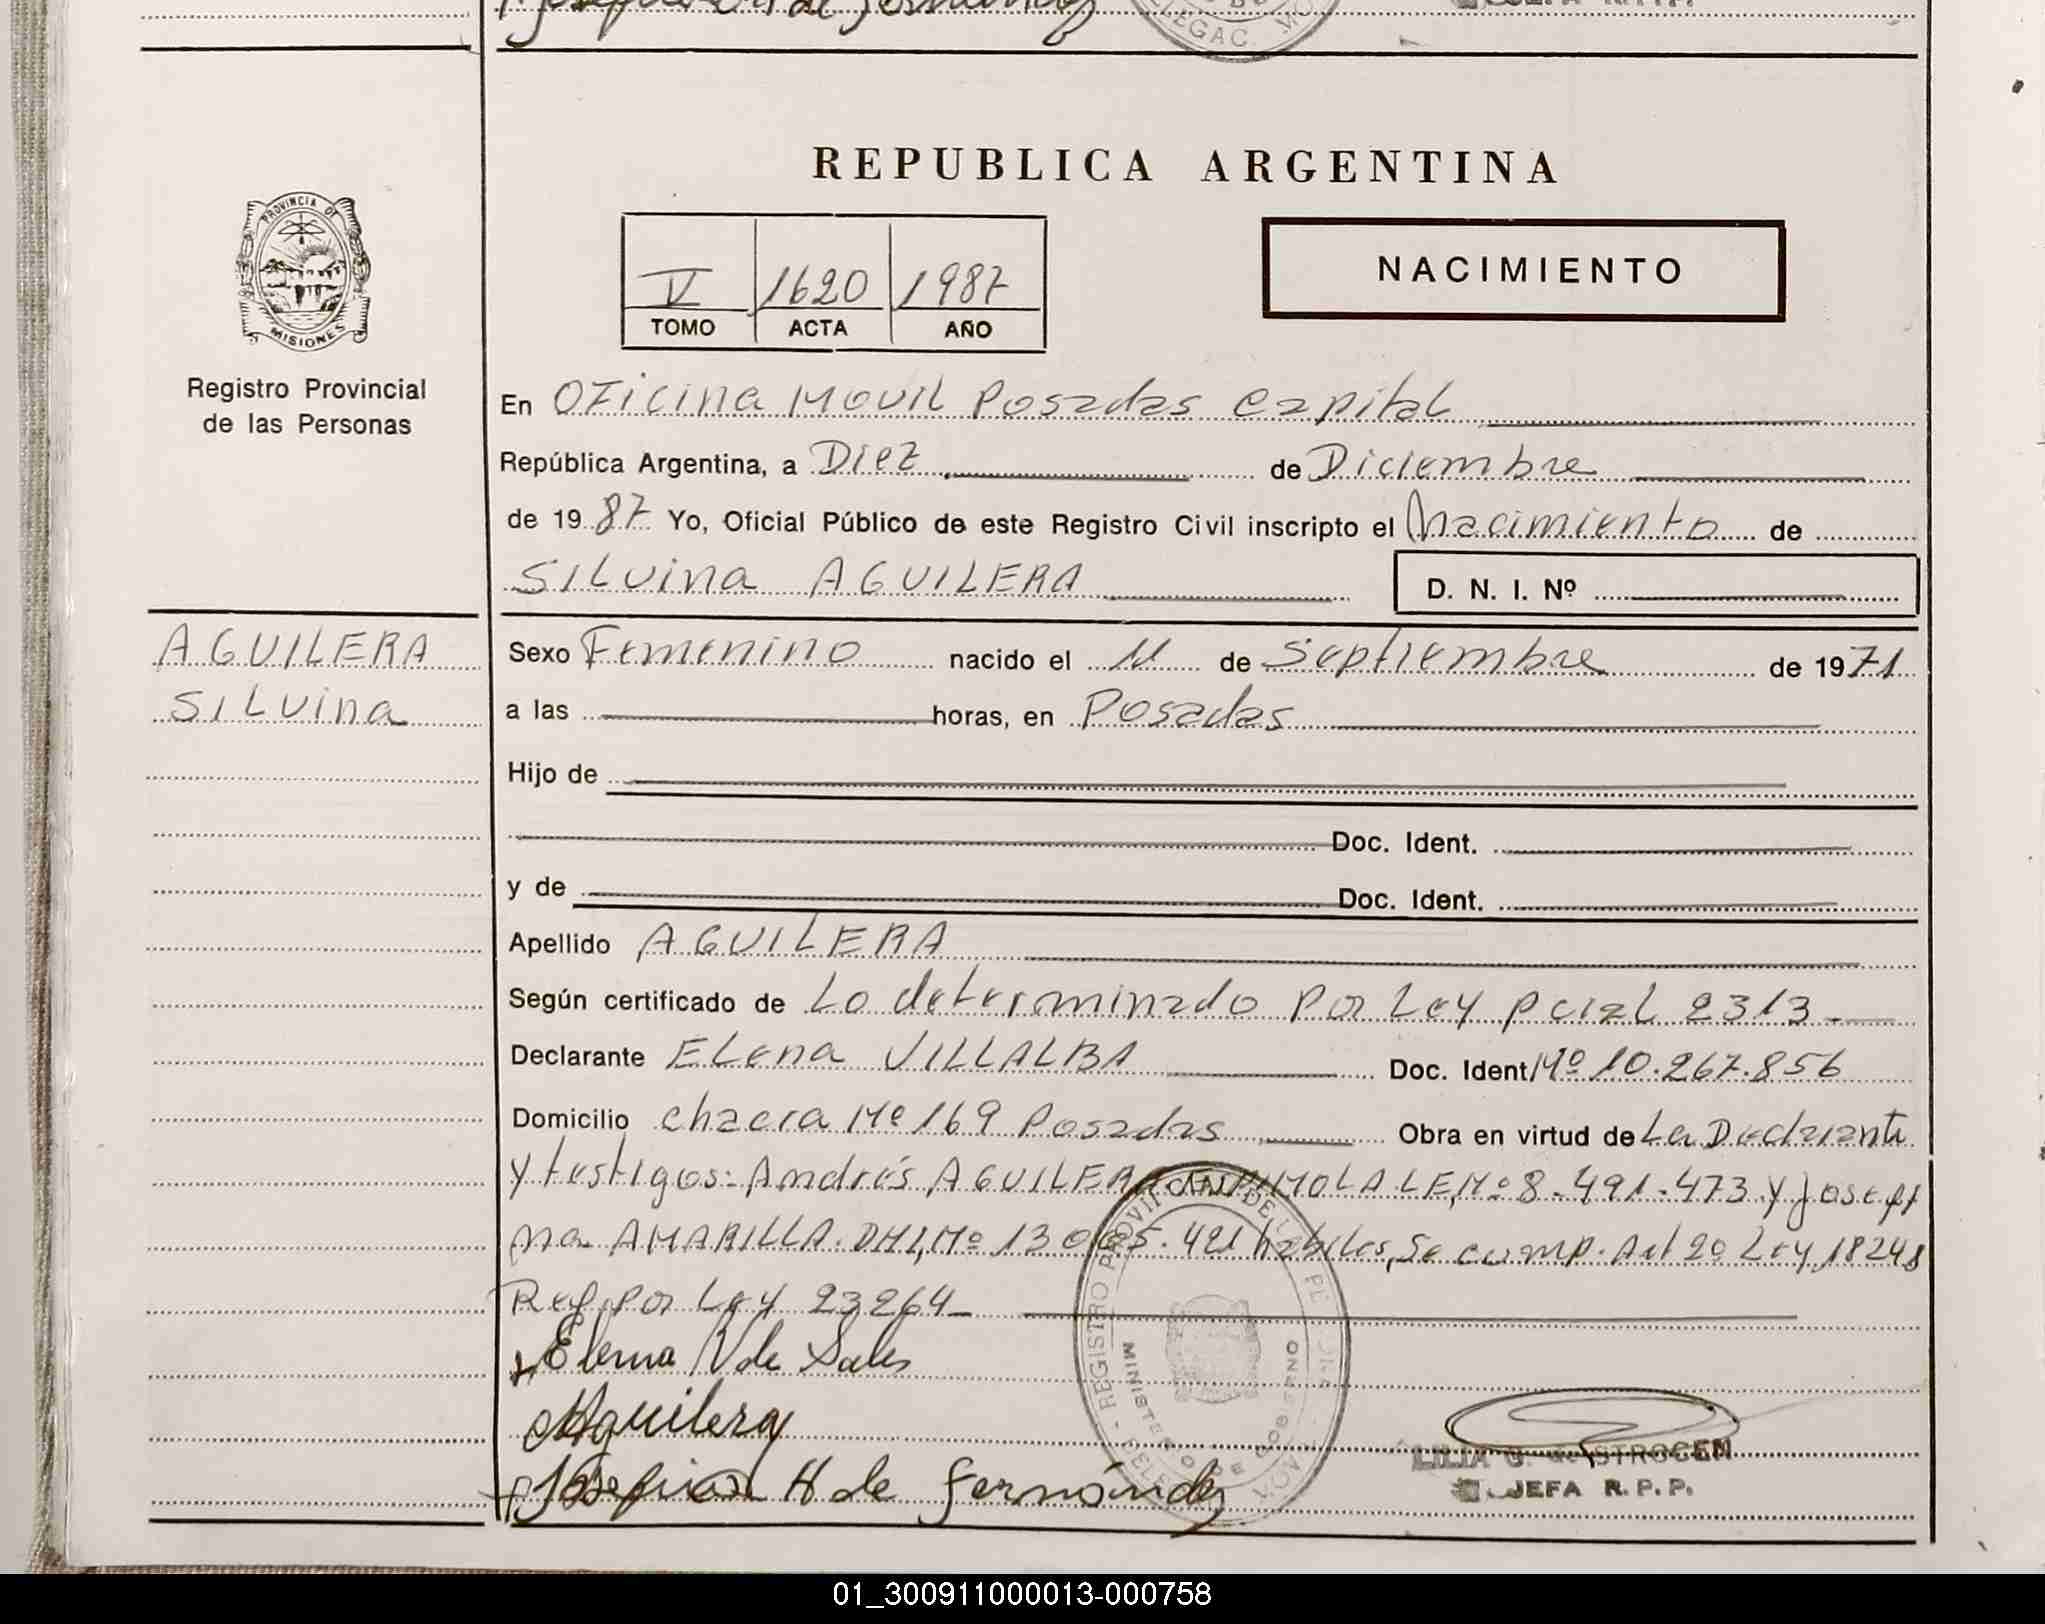 REPUBLICA ARGENTINA
PROVINCIA DE
MISIONES
Registro Provincial
de las Personas
V 1620 1987
TOMO ACTA AÑO
NACIMIENTO
En Oficina Movil Posadas Capital
República Argentina, a Diez de Diciembre
de 1987 Yo, Oficial Público de este Registro Civil inscripto el Nacimiento de
Silvina AGUILERA D. N. I. Nº
AGUILERA
Silvina
Sexo Femenino nacido el 11 de Septiembre de 1971
a las horas, en Posadas
Hijo de
Doc. Ident.
y de Doc. Ident.
Apellido AGUILERA
Según certificado de Lo determinado por Ley pcial 2313
Declarante Elena VILLALBA Doc. Ident Nº 10.267.856
Domicilio chacra Nº 169 Posadas Obra en virtud de La Declarante
y testigos: Andrés AGUILERA LE, Nº 8.491.473 y Josefi
na AMARILLA. DNI, Nº 13 421 habiles, Se comp. Art 2º Ley 18248
Ref por Ley 23264
Elena V de
Aguilera
Josefina A de Fernández
REGISTRO MINISTERIO DE GOBIERNO
JEFA R.P.P.
01_300911000013-000758